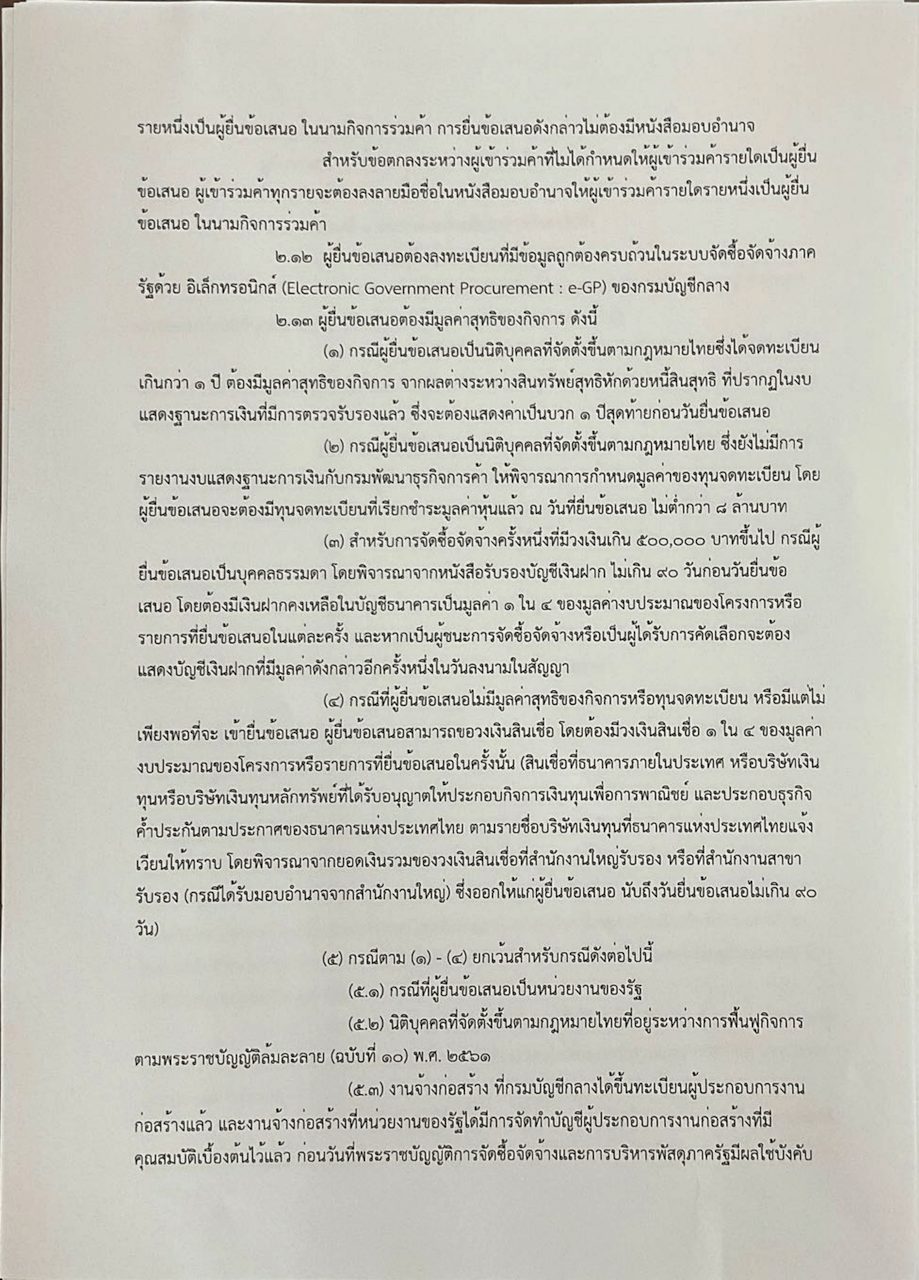 รายหนึ่งเป็นผู้ยื่นข้อเสนอ ในนามกิจการร่วมค้า การยื่นข้อเสนอดังกล่าวไม่ต้องมีหนังสือมอบอำนาจ
สำหรับข้อตกลงระหว่างผู้เข้าร่วมค้าที่ไม่ได้กำหนดให้ผู้เข้าร่วมค้ารายใดเป็นผู้ยื่น
ข้อเสนอ ผู้เข้าร่วมค้าทุกรายจะต้องลงลายมือชื่อในหนังสือมอบอำนาจให้ผู้เข้าร่วมค้ารายใดรายหนึ่งเป็นผู้ยื่น
ข้อเสนอ ในนามกิจการร่วมค้า
๒.๑๒ ผู้ยื่นข้อเสนอต้องลงทะเบียนที่มีข้อมูลถูกต้องครบถ้วนในระบบจัดซื้อจัดจ้างภาค
รัฐด้วย อิเล็กทรอนิกส์ (Electronic Government Procurement : e-GP) ของกรมบัญชีกลาง
๒.๑๓ ผู้ยื่นข้อเสนอต้องมีมูลค่าสุทธิของกิจการ ดังนี้
(๑) กรณีผู้ยื่นข้อเสนอเป็นนิติบุคคลที่จัดตั้งขึ้นตามกฎหมายไทยซึ่งได้จดทะเบียน
เกินกว่า ๑ ปี ต้องมีมูลค่าสุทธิของกิจการ จากผลต่างระหว่างสินทรัพย์สุทธิหักด้วยหนี้สินสุทธิ ที่ปรากฏในงบ
แสดงฐานะการเงินที่มีการตรวจรับรองแล้ว ซึ่งจะต้องแสดงค่าเป็นบวก ๑ ปีสุดท้ายก่อนวันยื่นข้อเสนอ
(๒) กรณีผู้ยื่นข้อเสนอเป็นนิติบุคคลที่จัดตั้งขึ้นตามกฎหมายไทย ซึ่งยังไม่มีการ
รายงานงบแสดงฐานะการเงินกับกรมพัฒนาธุรกิจการค้า ให้พิจารณาการกำหนดมูลค่าของทุนจดทะเบียน โดย
ผู้ยื่นข้อเสนอจะต้องมีทุนจดทะเบียนที่เรียกชำระมูลค่าหุ้นแล้ว ณ วันที่ยื่นข้อเสนอ ไม่ต่ำกว่า ๘ ล้านบาท
(๓) สำหรับการจัดซื้อจัดจ้างครั้งหนึ่งที่มีวงเงินเกิน ๕๐๐,๐๐๐ บาทขึ้นไป กรณีผู้
ยื่นข้อเสนอเป็นบุคคลธรรมดา โดยพิจารณาจากหนังสือรับรองบัญชีเงินฝาก ไม่เกิน ๙๐ วันก่อนวันยื่นข้อ
เสนอ โดยต้องมีเงินฝากคงเหลือในบัญชีธนาคารเป็นมูลค่า ๑ ใน ๔ ของมูลค่างบประมาณของโครงการหรือ
รายการที่ยื่นข้อเสนอในแต่ละครั้ง และหากเป็นผู้ชนะการจัดซื้อจัดจ้างหรือเป็นผู้ได้รับการคัดเลือกจะต้อง
แสดงบัญชีเงินฝากที่มีมูลค่าดังกล่าวอีกครั้งหนึ่งในวันลงนามในสัญญา
(๔) กรณีที่ผู้ยื่นข้อเสนอไม่มีมูลค่าสุทธิของกิจการหรือทุนจดทะเบียน หรือมีแต่ไม่
เพียงพอที่จะ เข้ายื่นข้อเสนอ ผู้ยื่นข้อเสนอสามารถขอวงเงินสินเชื่อ โดยต้องมีวงเงินสินเชื่อ ๑ ใน ๔ ของมูลค่า
งบประมาณของโครงการหรือรายการที่ยื่นข้อเสนอในครั้งนั้น (สินเชื่อที่ธนาคารภายในประเทศ หรือบริษัทเงิน
ทุนหรือบริษัทเงินทุนหลักทรัพย์ที่ได้รับอนุญาตให้ประกอบกิจการเงินทุนเพื่อการพาณิชย์ และประกอบธุรกิจ
ค้ำประกันตามประกาศของธนาคารแห่งประเทศไทย ตามรายชื่อบริษัทเงินทุนที่ธนาคารแห่งประเทศไทยแจ้ง
เวียนให้ทราบ โดยพิจารณาจากยอดเงินรวมของวงเงินสินเชื่อที่สำนักงานใหญ่รับรอง หรือที่สำนักงานสาขา
รับรอง (กรณีได้รับมอบอำนาจจากสำนักงานใหญ่) ซึ่งออกให้แก่ผู้ยื่นข้อเสนอ นับถึงวันยื่นข้อเสนอไม่เกิน ๙๐
วัน)
(๕) กรณีตาม (๑) - (๔) ยกเว้นสำหรับกรณีดังต่อไปนี้
(๕.๑) กรณีที่ผู้ยื่นข้อเสนอเป็นหน่วยงานของรัฐ
(๕.๒) นิติบุคคลที่จัดตั้งขึ้นตามกฎหมายไทยที่อยู่ระหว่างการฟื้นฟูกิจการ
ตามพระราชบัญญัติล้มละลาย (ฉบับที่ ๑๐) พ.ศ. ๒๕๖๑
(๕.๓) งานจ้างก่อสร้าง ที่กรมบัญชีกลางได้ขึ้นทะเบียนผู้ประกอบการงาน
ก่อสร้างแล้ว และงานจ้างก่อสร้างที่หน่วยงานของรัฐได้มีการจัดทำบัญชีผู้ประกอบการงานก่อสร้างที่มี
คุณสมบัติเบื้องต้นไว้แล้ว ก่อนวันที่พระราชบัญญัติการจัดซื้อจัดจ้างและการบริหารพัสดุภาครัฐมีผลใช้บังคับ